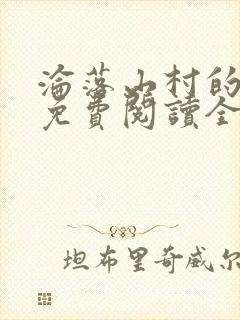 淪落山村的
免費閱讀全
坦布里奇威尔